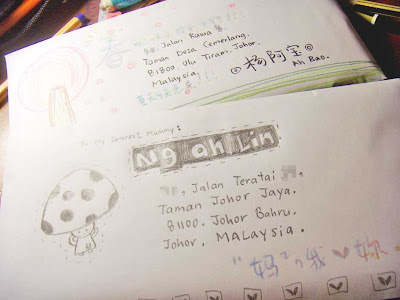 春
Jalan Rawa
Taman Desa Cemerlang.
81800. Ulu Tiram. Johor.
Malaysia.
杨阿宝
Ah Bao.
To My Dearest Mummy:
Ng Ah Lin
, Jalan Teratai ,
Taman Johor Jaya.
81100. Johor Bahru.
Johor. MALaysia.
"妈",我♥妳